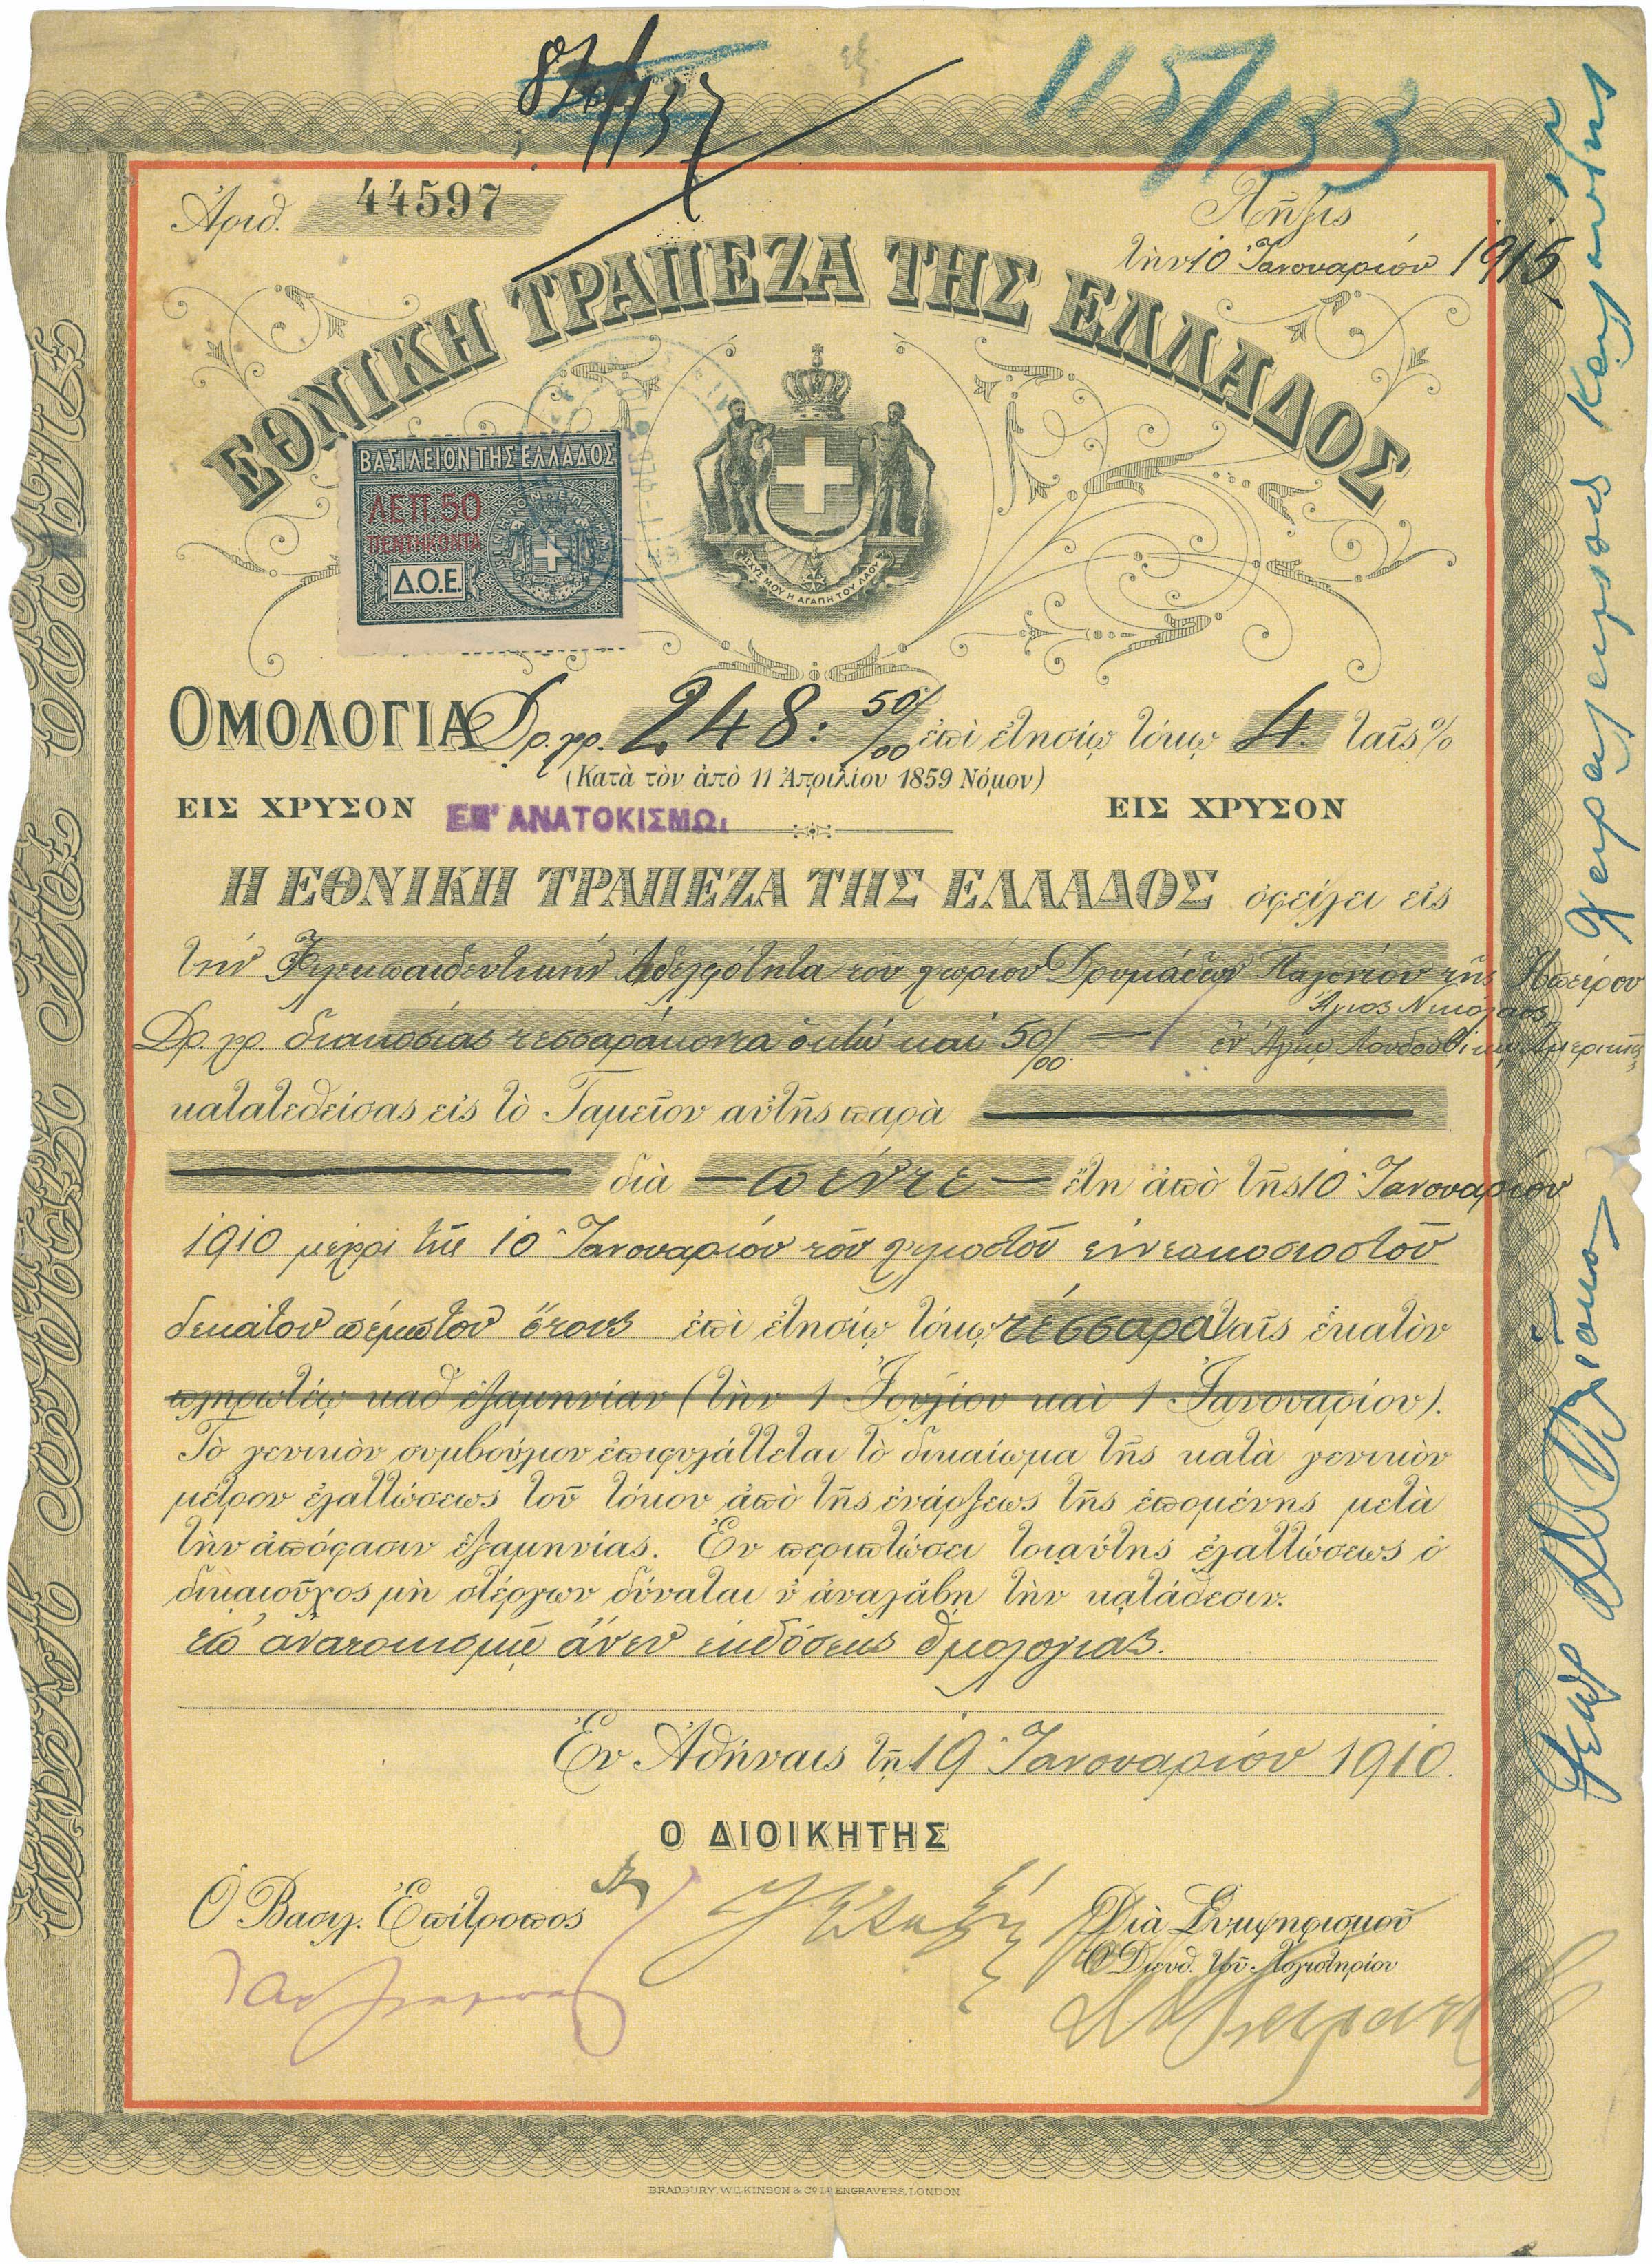 115/133
Ἀριθ. 44597
Λῆξις
τὴν 10 Ἰανουαρίου 1915
ΕΘΝΙΚΗ ΤΡΑΠΕΖΑ ΤΗΣ ΕΛΛΑΔΟΣ
ΒΑΣΙΛΕΙΟΝ ΤΗΣ ΕΛΛΑΔΟΣ
ΛΕΠ. 50
ΠΕΝΤΗΚΟΝΤΑ
Δ.Ο.Ε.
ΚΙΝΗΤΟΝ ΕΠΙΣΗΜ
ΙΣΧΥΣ ΜΟΥ Η ΑΓΑΠΗ ΤΟΥ ΛΑΟΥ
ΟΜΟΛΟΓΙΑ Δρ. χρ. 248: 50/00 ἐπὶ ἐτησίῳ τόκῳ 4. τοῖς %
(Κατὰ τὸν ἀπὸ 11 Ἀπριλίου 1859 Νόμον)
ΕΙΣ ΧΡΥΣΟΝ ΕΠ' ΑΝΑΤΟΚΙΣΜΩι ΕΙΣ ΧΡΥΣΟΝ
Η ΕΘΝΙΚΗ ΤΡΑΠΕΖΑ ΤΗΣ ΕΛΛΑΔΟΣ ὀφείλει εἰς
τὴν Φιλεκπαιδευτικὴν Ἀδελφότητα τοῦ χωρίου Δρυμάδων Παλονίου τῆς Ἠπείρου
Ἅγιος Νικόλαος
Δρ. χρ. διακοσίας τεσσαράκοντα ὀκτὼ καὶ 50/00 — ἐν Ἁγίῳ Λουδοβίκῳ Ἀμερικῆς
κατατεθείσας εἰς τὸ Ταμεῖον αὐτῆς παρὰ
διὰ — πέντε — ἔτη ἀπὸ τῆς 10 Ἰανουαρίου
1910 μέχρι τῆς 10 Ἰανουαρίου τοῦ χιλιοστοῦ ἐννεακοσιοστοῦ
δεκάτου πέμπτου ἔτους ἐπὶ ἐτησίῳ τόκῳ τέσσαρα τοῖς ἑκατὸν
πληρωτέῳ καθ' ἑξαμηνίαν (τὴν 1 Ἰουλίου καὶ 1 Ἰανουαρίου).
Τὸ γενικὸν συμβούλιον ἐπιφυλάττεται τὸ δικαίωμα τῆς κατὰ γενικὸν
μέτρον ἐλαττώσεως τοῦ τόκου ἀπὸ τῆς ἐνάρξεως τῆς ἑπομένης μετὰ
τὴν ἀπόφασιν ἑξαμηνίας. Ἐν περιπτώσει τοιαύτης ἐλαττώσεως ὁ
δικαιοῦχος μὴ στέργων δύναται ν' ἀναλάβῃ τὴν κατάθεσιν.
ἐπ' ἀνατοκισμῷ ἄνευ ἐκδόσεως ὁμολογίας.
Ἐν Ἀθήναις τῇ 19 Ἰανουαρίου 1910.
Ο ΔΙΟΙΚΗΤΗΣ
Ὁ Βασιλ. Ἐπίτροπος
Διὰ Συμψηφισμοῦ
Ὁ Διευθ. τοῦ Λογιστηρίου
BRADBURY, WILKINSON & Co Ld ENGRAVERS, LONDON